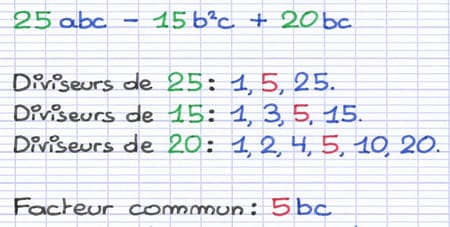 25 abc - 15 b²c + 20 bc
Diviseurs de 25: 1, 5, 25.
Diviseurs de 15: 1, 3, 5, 15.
Diviseurs de 20: 1, 2, 4, 5, 10, 20.
Facteur commun: 5 bc